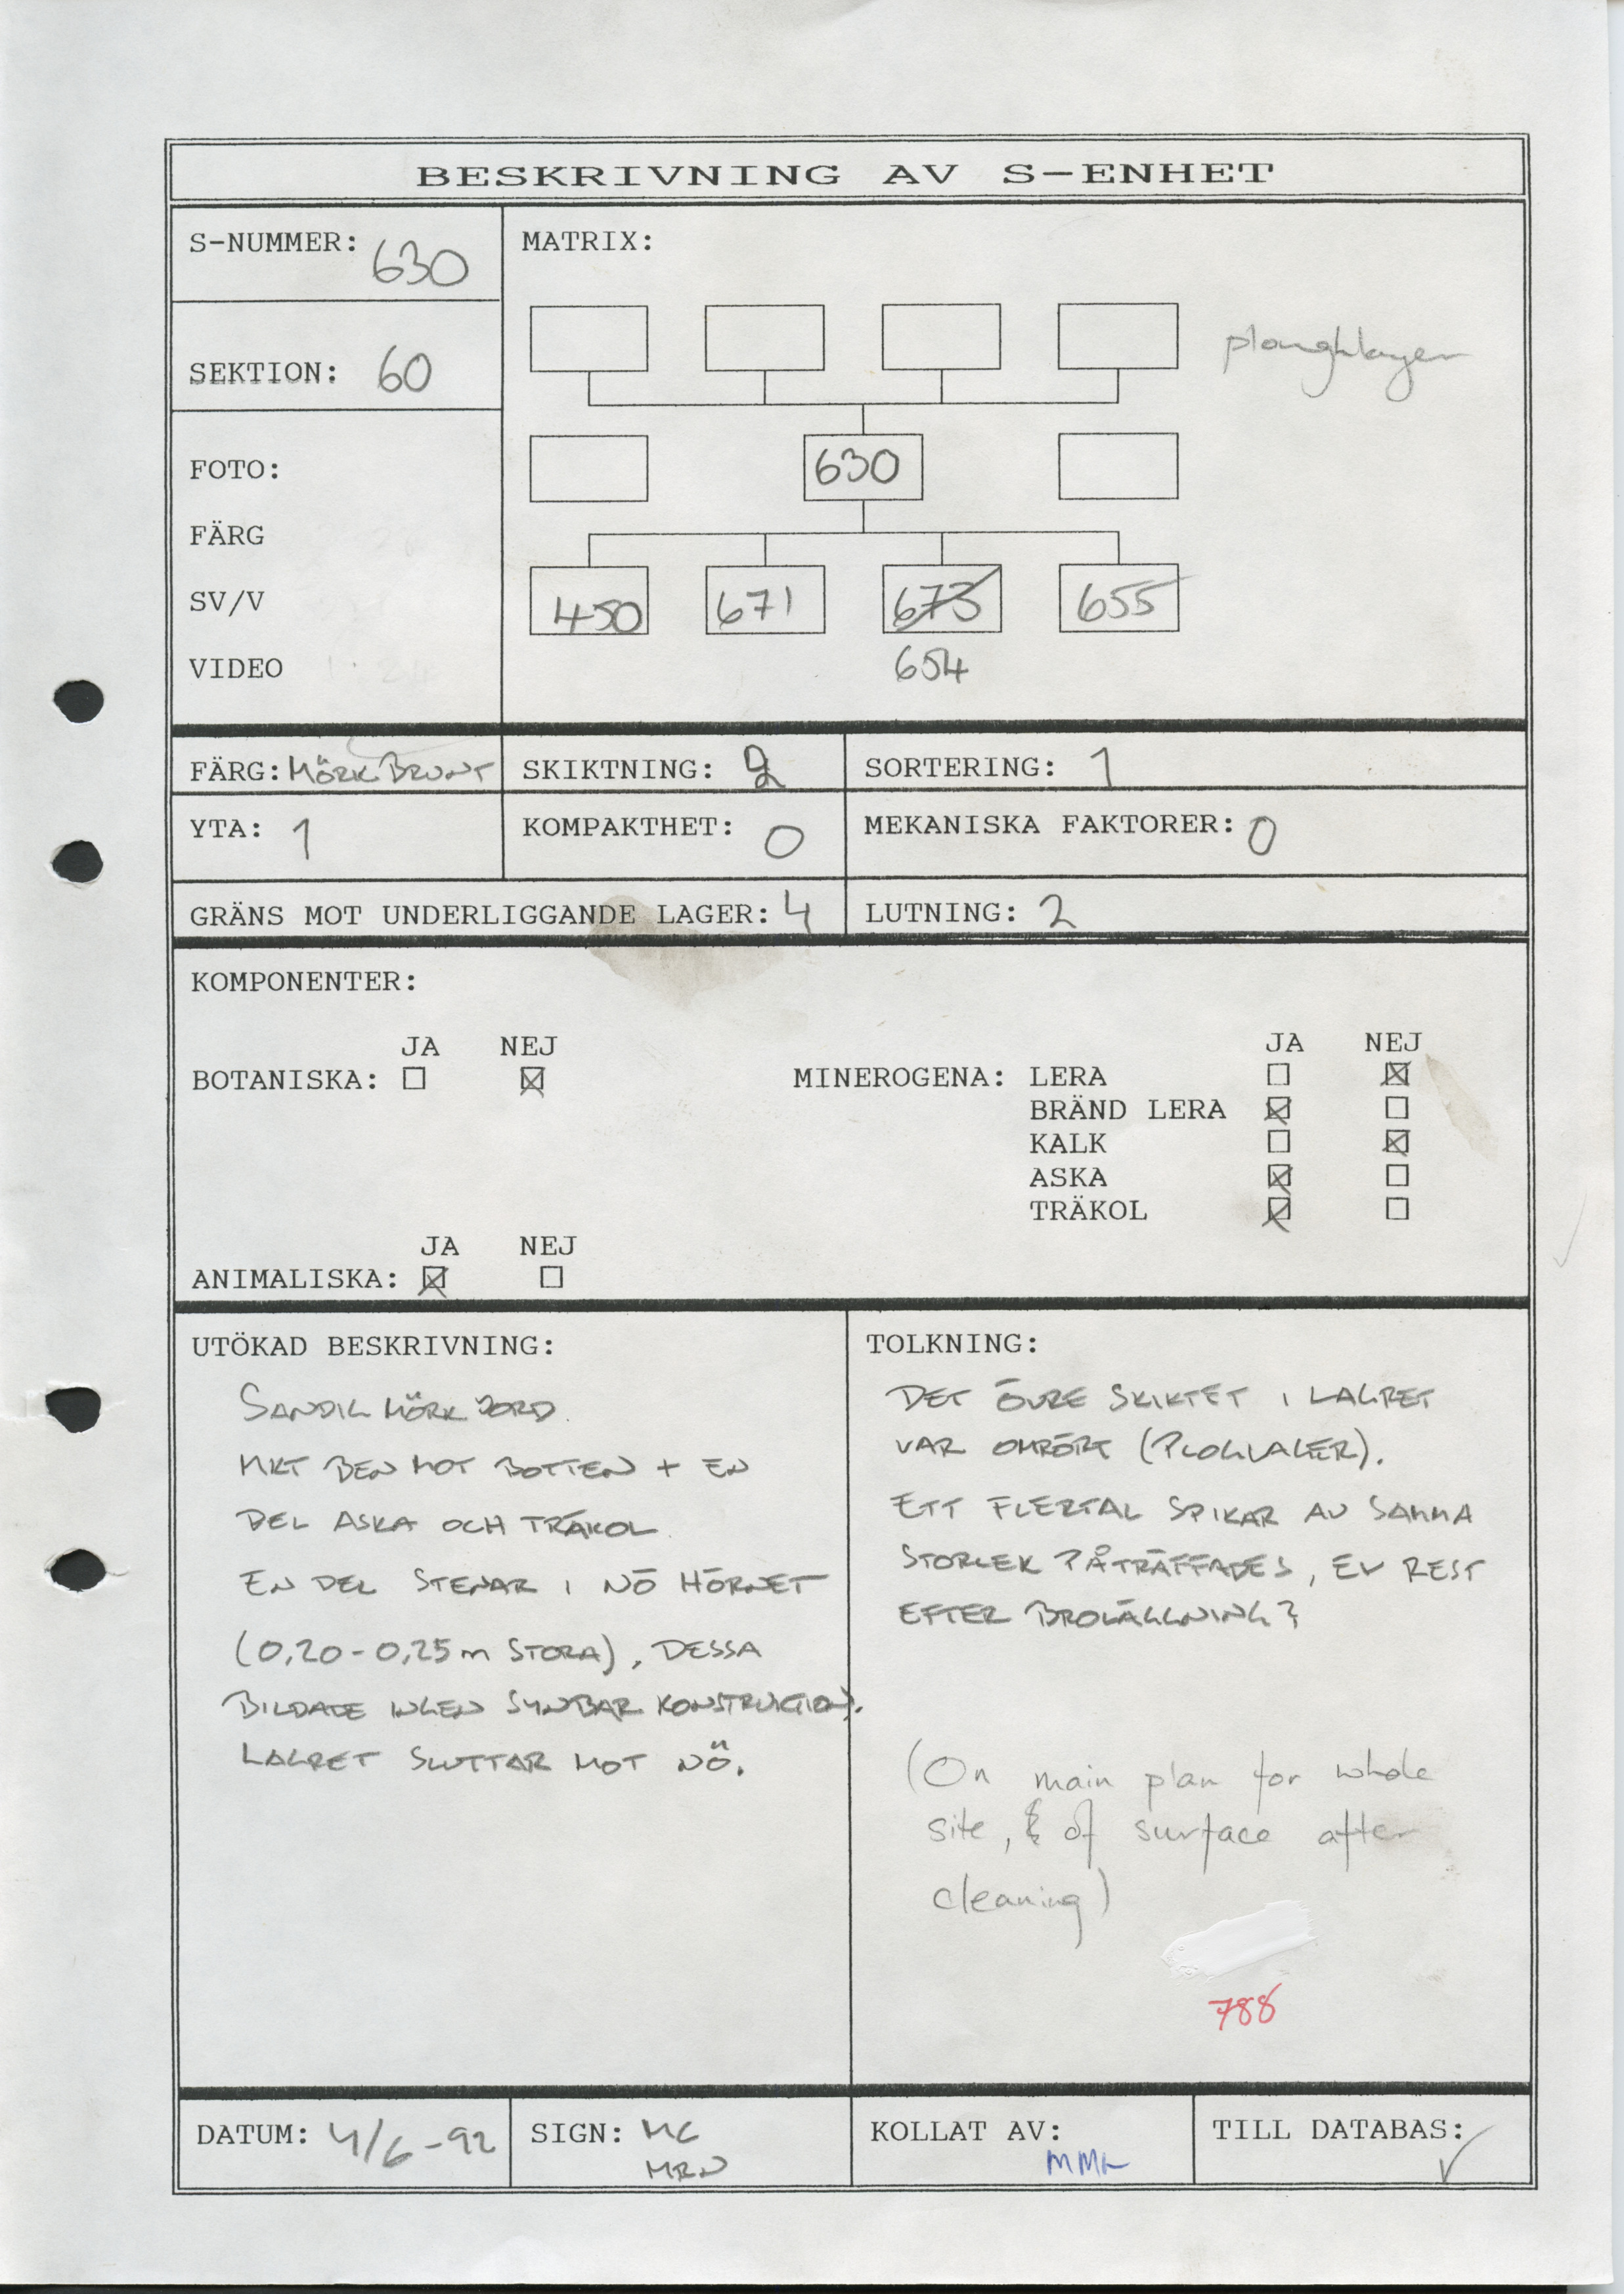 BESKRIVNING AV S-ENHET
S-NUMMER: 630
MATRIX:
SEKTION: 60
ploughlayer
FOTO:
630
FÄRG
SV/V
450 671 673 655
VIDEO
654
FÄRG: MÖRK BRUNT SKIKTNING: 2 SORTERING: 1
YTA: 1 KOMPAKTHET: 0 MEKANISKA FAKTORER: 0
GRÄNS MOT UNDERLIGGANDE LAGER: 4 LUTNING: 2
KOMPONENTER:
JA NEJ
BOTANISKA: ☐ ☒
JA NEJ
MINEROGENA: LERA ☐ ☒
BRÄND LERA ☒ ☐
KALK ☐ ☒
ASKA ☒ ☐
TRÄKOL ☒ ☐
JA NEJ
ANIMALISKA: ☒ ☐
UTÖKAD BESKRIVNING:
SANDIG MÖRK JORD.
MKT BEN MOT BOTTEN + EN
DEL ASKA OCH TRÄKOL.
EN DEL STENAR I NÖ HÖRNET
(0,20-0,25m STORA), DESSA
BILDADE INGEN SYNBAR KONSTRUKTION.
LAGRET SLUTTAR MOT NÖ.
TOLKNING:
DET ÖVRE SKIKTET I LAGRET
VAR OMRÖRT (PLOGLAGER).
ETT FLERTAL SPIKAR AV SAMMA
STORLEK PÅTRÄFFADES, EV REST
EFTER BROLÄGGNING?
(On main plan for whole
site, & of surface after
cleaning)
788
DATUM: 4/6-92 SIGN: MC
MRN
KOLLAT AV:
MMH
TILL DATABAS: ✓